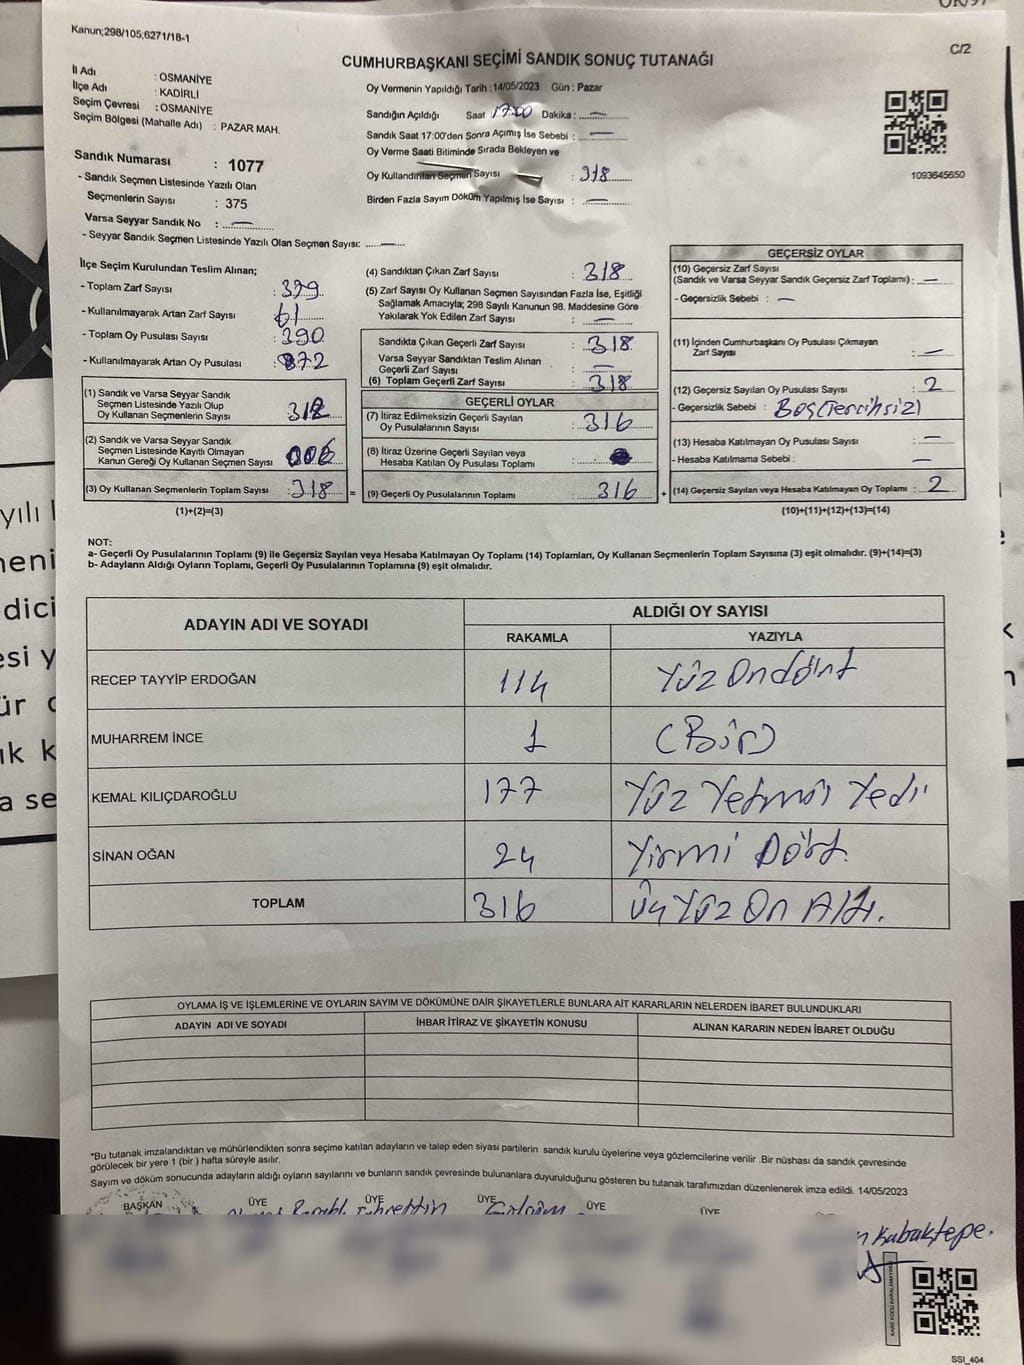 OR/97
Kanun;298/105;6271/18-1
C/2
CUMHURBAŞKANI SEÇİMİ SANDIK SONUÇ TUTANAĞI
İl Adı : OSMANİYE
İlçe Adı : KADİRLİ
Seçim Çevresi : OSMANİYE
Seçim Bölgesi (Mahalle Adı) : PAZAR MAH.
Sandık Numarası : 1077
- Sandık Seçmen Listesinde Yazılı Olan
Seçmenlerin Sayısı : 375
Varsa Seyyar Sandık No : —
- Seyyar Sandık Seçmen Listesinde Yazılı Olan Seçmen Sayısı: —
Oy Vermenin Yapıldığı Tarih :14/05/2023 Gün : Pazar
Sandığın Açıldığı Saat 17:00 Dakika : —
Sandık Saat 17:00'den Sonra Açımış İse Sebebi : —
Oy Verme Saati Bitiminde Sırada Bekleyen ve
Oy Kullandırılan Seçmen Sayısı : 318
Birden Fazla Sayım Döküm Yapılmış İse Sayısı : —
1093645650
İlçe Seçim Kurulundan Teslim Alınan;
- Toplam Zarf Sayısı : 379
- Kullanılmayarak Artan Zarf Sayısı : 61
- Toplam Oy Pusulası Sayısı : 390
- Kullanılmayarak Artan Oy Pusulası : 72
(1) Sandık ve Varsa Seyyar Sandık
Seçmen Listesinde Yazılı Olup
Oy Kullanan Seçmenlerin Sayısı : 312
(2) Sandık ve Varsa Seyyar Sandık
Seçmen Listesinde Kayıtlı Olmayan
Kanun Gereği Oy Kullanan Seçmen Sayısı : 006
(3) Oy Kullanan Seçmenlerin Toplam Sayısı : 318 =
(1)+(2)=(3)
(4) Sandıktan Çıkan Zarf Sayısı : 318
(5) Zarf Sayısı Oy Kullanan Seçmen Sayısından Fazla İse, Eşitliği
Sağlamak Amacıyla; 298 Sayılı Kanunun 98. Maddesine Göre
Yakılarak Yok Edilen Zarf Sayısı : —
Sandıkta Çıkan Geçerli Zarf Sayısı : 318
Varsa Seyyar Sandıktan Teslim Alınan
Geçerli Zarf Sayısı : —
(6) Toplam Geçerli Zarf Sayısı : 318
GEÇERLİ OYLAR
(7) İtiraz Edilmeksizin Geçerli Sayılan
Oy Pusulalarının Sayısı : 316
(8) İtiraz Üzerine Geçerli Sayılan veya
Hesaba Katılan Oy Pusulası Toplamı :
(9) Geçerli Oy Pusulalarının Toplamı : 316 +
GEÇERSİZ OYLAR
(10) Geçersiz Zarf Sayısı
(Sandık ve Varsa Seyyar Sandık Geçersiz Zarf Toplamı) : —
- Geçersizlik Sebebi : —
(11) İçinden Cumhurbaşkanı Oy Pusulası Çıkmayan
Zarf Sayısı : —
(12) Geçersiz Sayılan Oy Pusulası Sayısı : 2
- Geçersizlik Sebebi : Boş(Tercihsiz)
(13) Hesaba Katılmayan Oy Pusulası Sayısı : —
- Hesaba Katılmama Sebebi : —
(14) Geçersiz Sayılan veya Hesaba Katılmayan Oy Toplamı : 2
(10)+(11)+(12)+(13)=(14)
NOT:
a- Geçerli Oy Pusulalarının Toplamı (9) ile Geçersiz Sayılan veya Hesaba Katılmayan Oy Toplamı (14) Toplamları, Oy Kullanan Seçmenlerin Toplam Sayısına (3) eşit olmalıdır. (9)+(14)=(3)
b- Adayların Aldığı Oyların Toplamı, Geçerli Oy Pusulalarının Toplamına (9) eşit olmalıdır.
ADAYIN ADI VE SOYADI ALDIĞI OY SAYISI
RAKAMLA YAZIYLA
RECEP TAYYİP ERDOĞAN 114 Yüz Ondört
MUHARREM İNCE 1 (Bir)
KEMAL KILIÇDAROĞLU 177 Yüz Yetmiş Yedi
SİNAN OĞAN 24 Yirmi Dört.
TOPLAM 316 Üç Yüz On Altı.
OYLAMA İŞ VE İŞLEMLERİNE VE OYLARIN SAYIM VE DÖKÜMÜNE DAİR ŞİKAYETLERLE BUNLARA AİT KARARLARIN NELERDEN İBARET BULUNDUKLARI
ADAYIN ADI VE SOYADI İHBAR İTİRAZ VE ŞİKAYETİN KONUSU ALINAN KARARIN NEDEN İBARET OLDUĞU
*Bu tutanak imzalandıktan ve mühürlendikten sonra seçime katılan adayların ve talep eden siyasi partilerin sandık kurulu üyelerine veya gözlemcilerine verilir .Bir nüshası da sandık çevresinde
görülecek bir yere 1 (bir ) hafta süreyle asılır.
Sayım ve döküm sonucunda adayların aldığı oyların sayılarını ve bunların sandık çevresinde bulunanlara duyurulduğunu gösteren bu tutanak tarafımızdan düzenlenerek imza edildi. 14/05/2023
BAŞKAN ÜYE ÜYE ÜYE ÜYE ÜYE
Kabaktepe.
KARE KODU KARALAMAYINIZ
SSİ_404
yılı
meni
dici
esi y
ür
ık k
a se